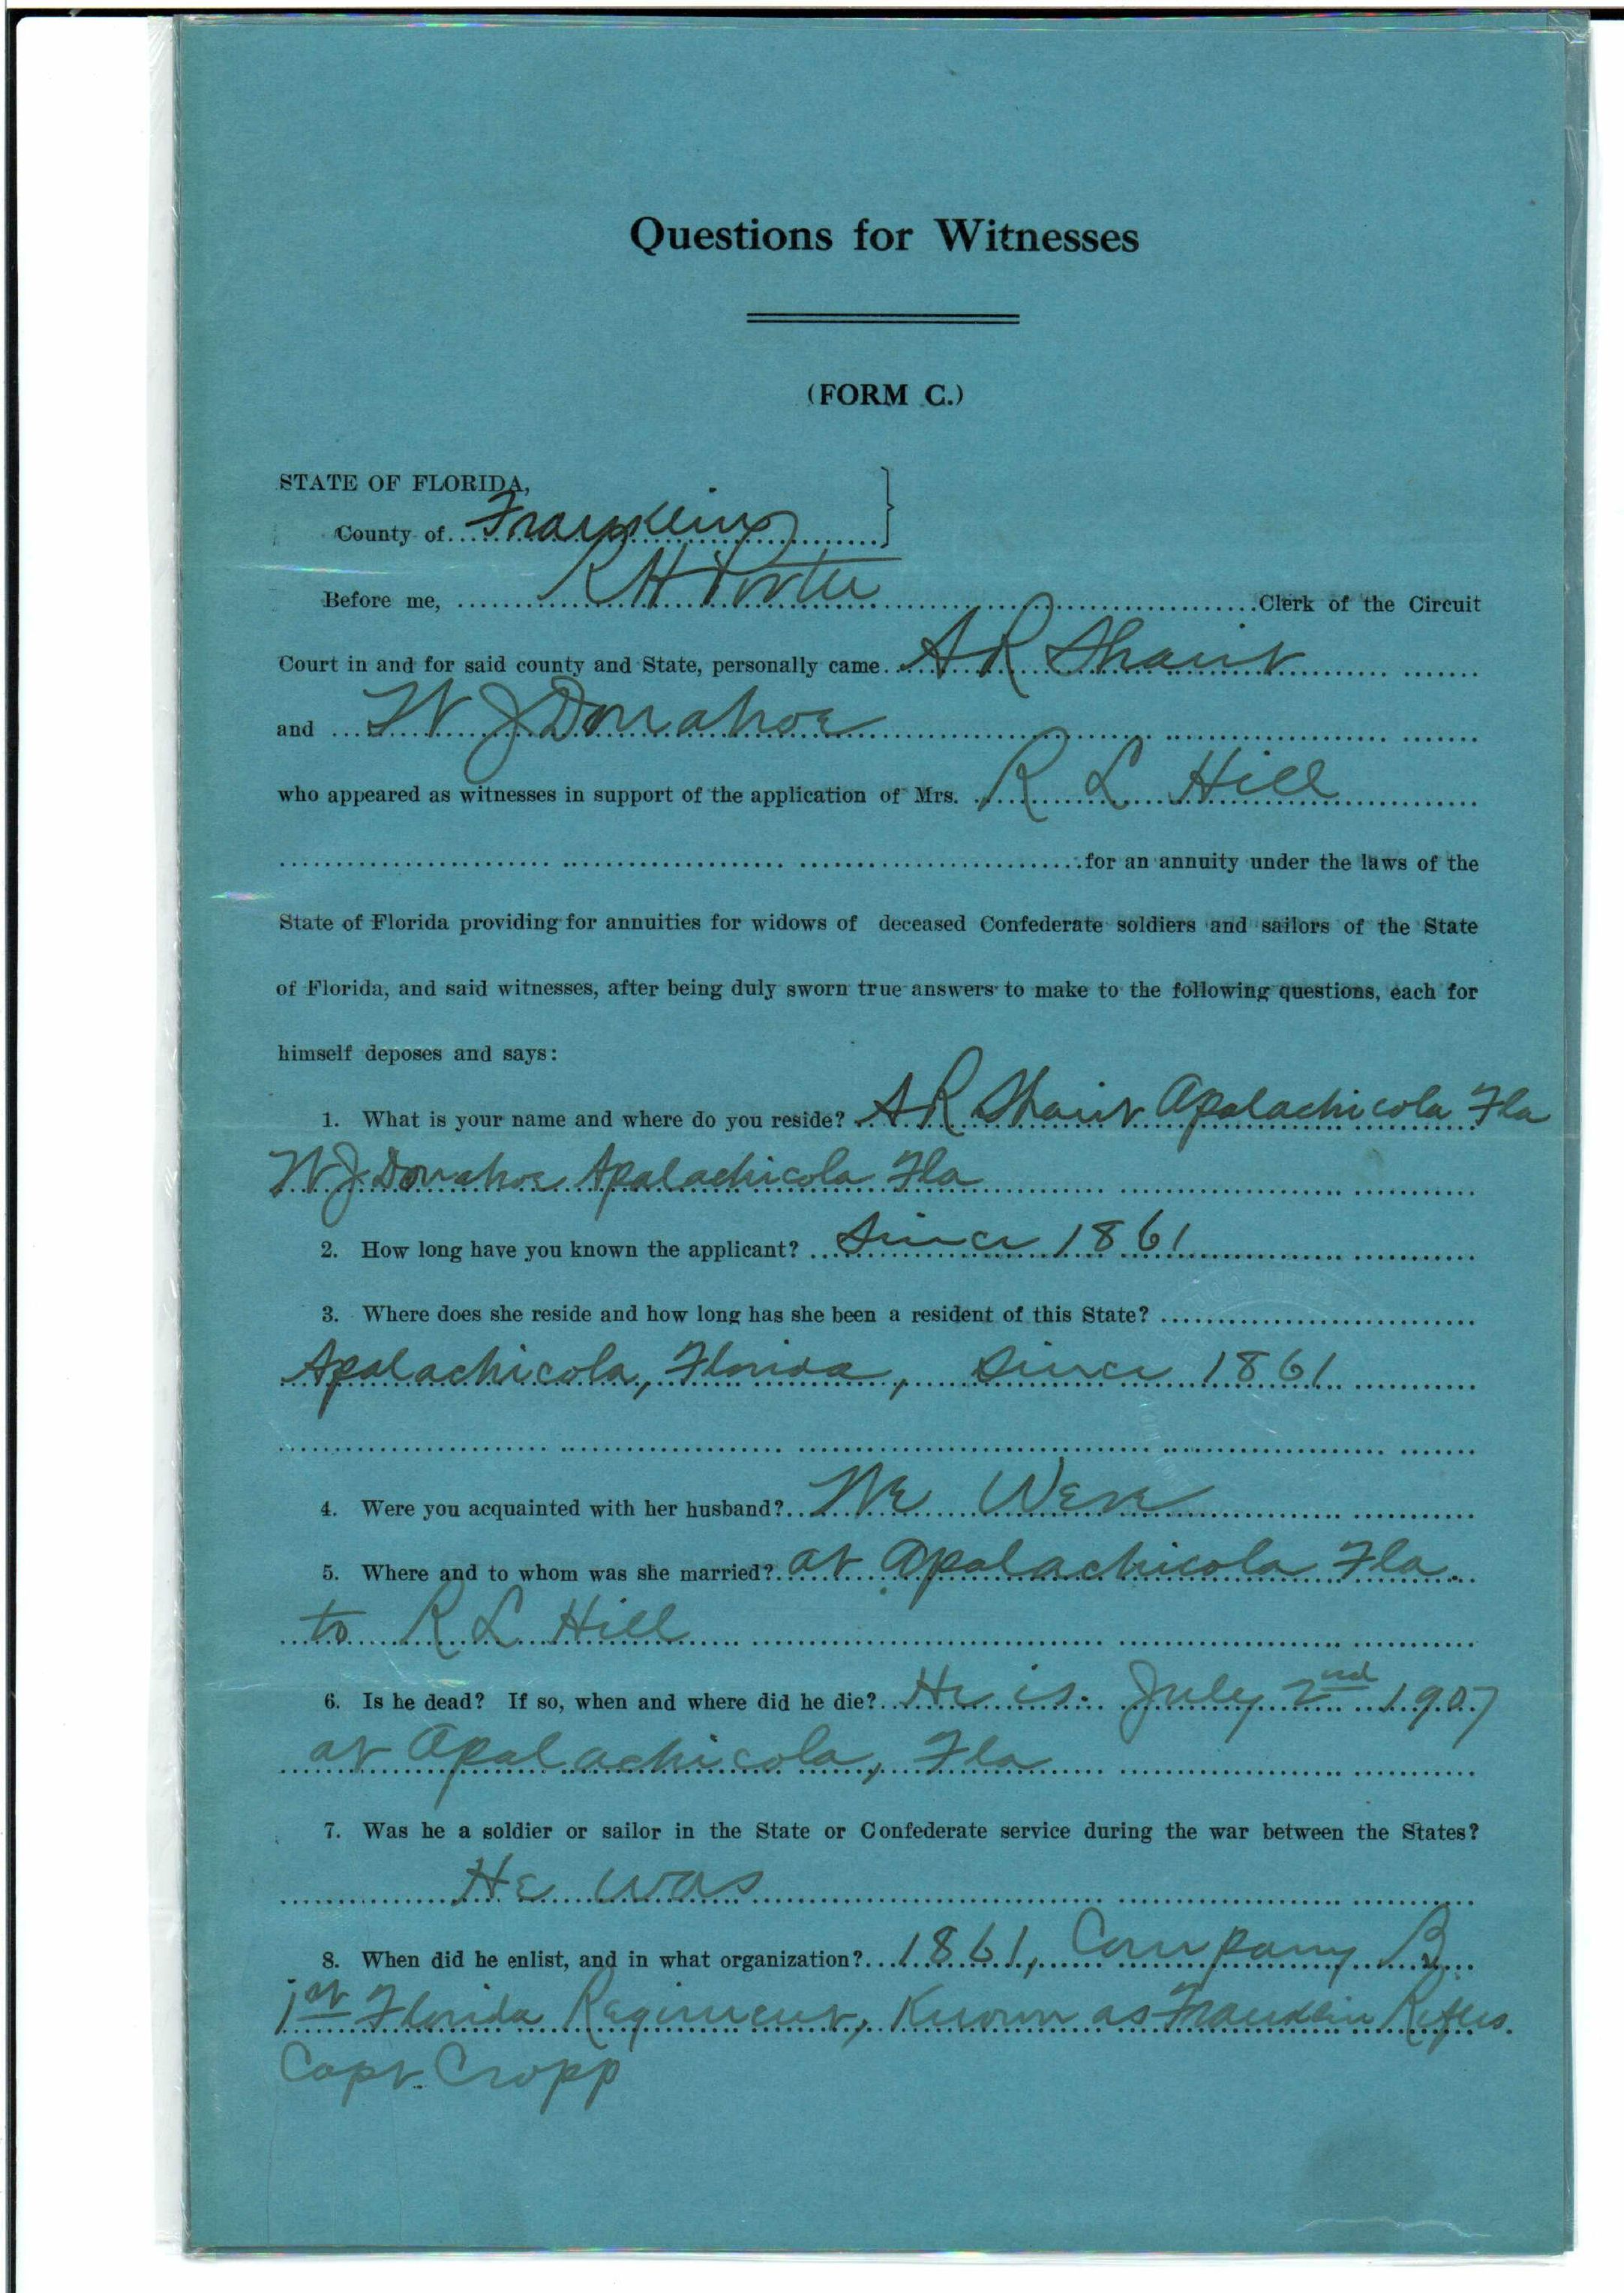 Questions for Witnesses
(FORM C.)
STATE OF FLORIDA,
County of Franklin
Before me, R H Porter Clerk of the Circuit
Court in and for said county and State, personally came A R
and W J Donahoe
who appeared as witnesses in support of the application of Mrs. R L Hill
for an annuity under the laws of the
State of Florida providing for annuities for widows of deceased Confederate soldiers and sailors of the State
of Florida, and said witnesses, after being duly sworn true answers to make to the following questions, each for
himself deposes and says:
1. What is your name and where do you reside? A R Apalachicola Fla
W J Donahoe Apalachicola Fla
2. How long have you known the applicant? Since 1861
3. Where does she reside and how long has she been a resident of this State?
Apalachicola, Florida, Since 1861
4. Were you acquainted with her husband? We Were
5. Where and to whom was she married? at Apalachicola Fla.
to R L Hill
6. Is he dead? If so, when and where did he die? He is. July 2nd 1907
at Apalachicola, Fla
7. Was he a soldier or sailor in the State or Confederate service during the war between the States?
He was
8. When did he enlist, and in what organization? 1861, Company B
1st Florida Regiment, Known as Franklin Rifles.
Capt. Cropp